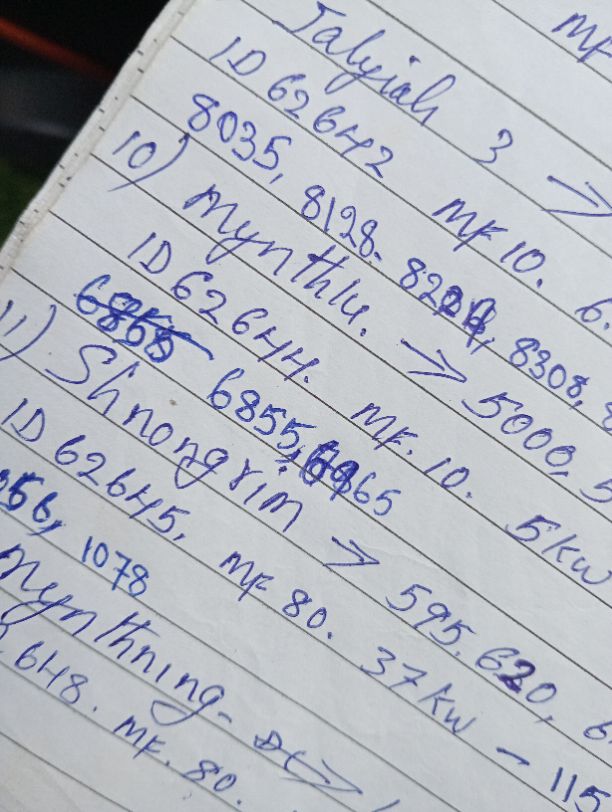 MF
Jalyiah 3 →
ID 62642 MF 10. 6.
8035, 8128. 8224, 8308, 8
10) Mynthlu. → 5000, 5
ID 62644. MF. 10. 5 KW
6855, 6965
11) Shnongrim → 595, 620, 6
ID 62645. MF 80. 37 KW - 115
056, 1078
Mynthning -
648. MF. 80.